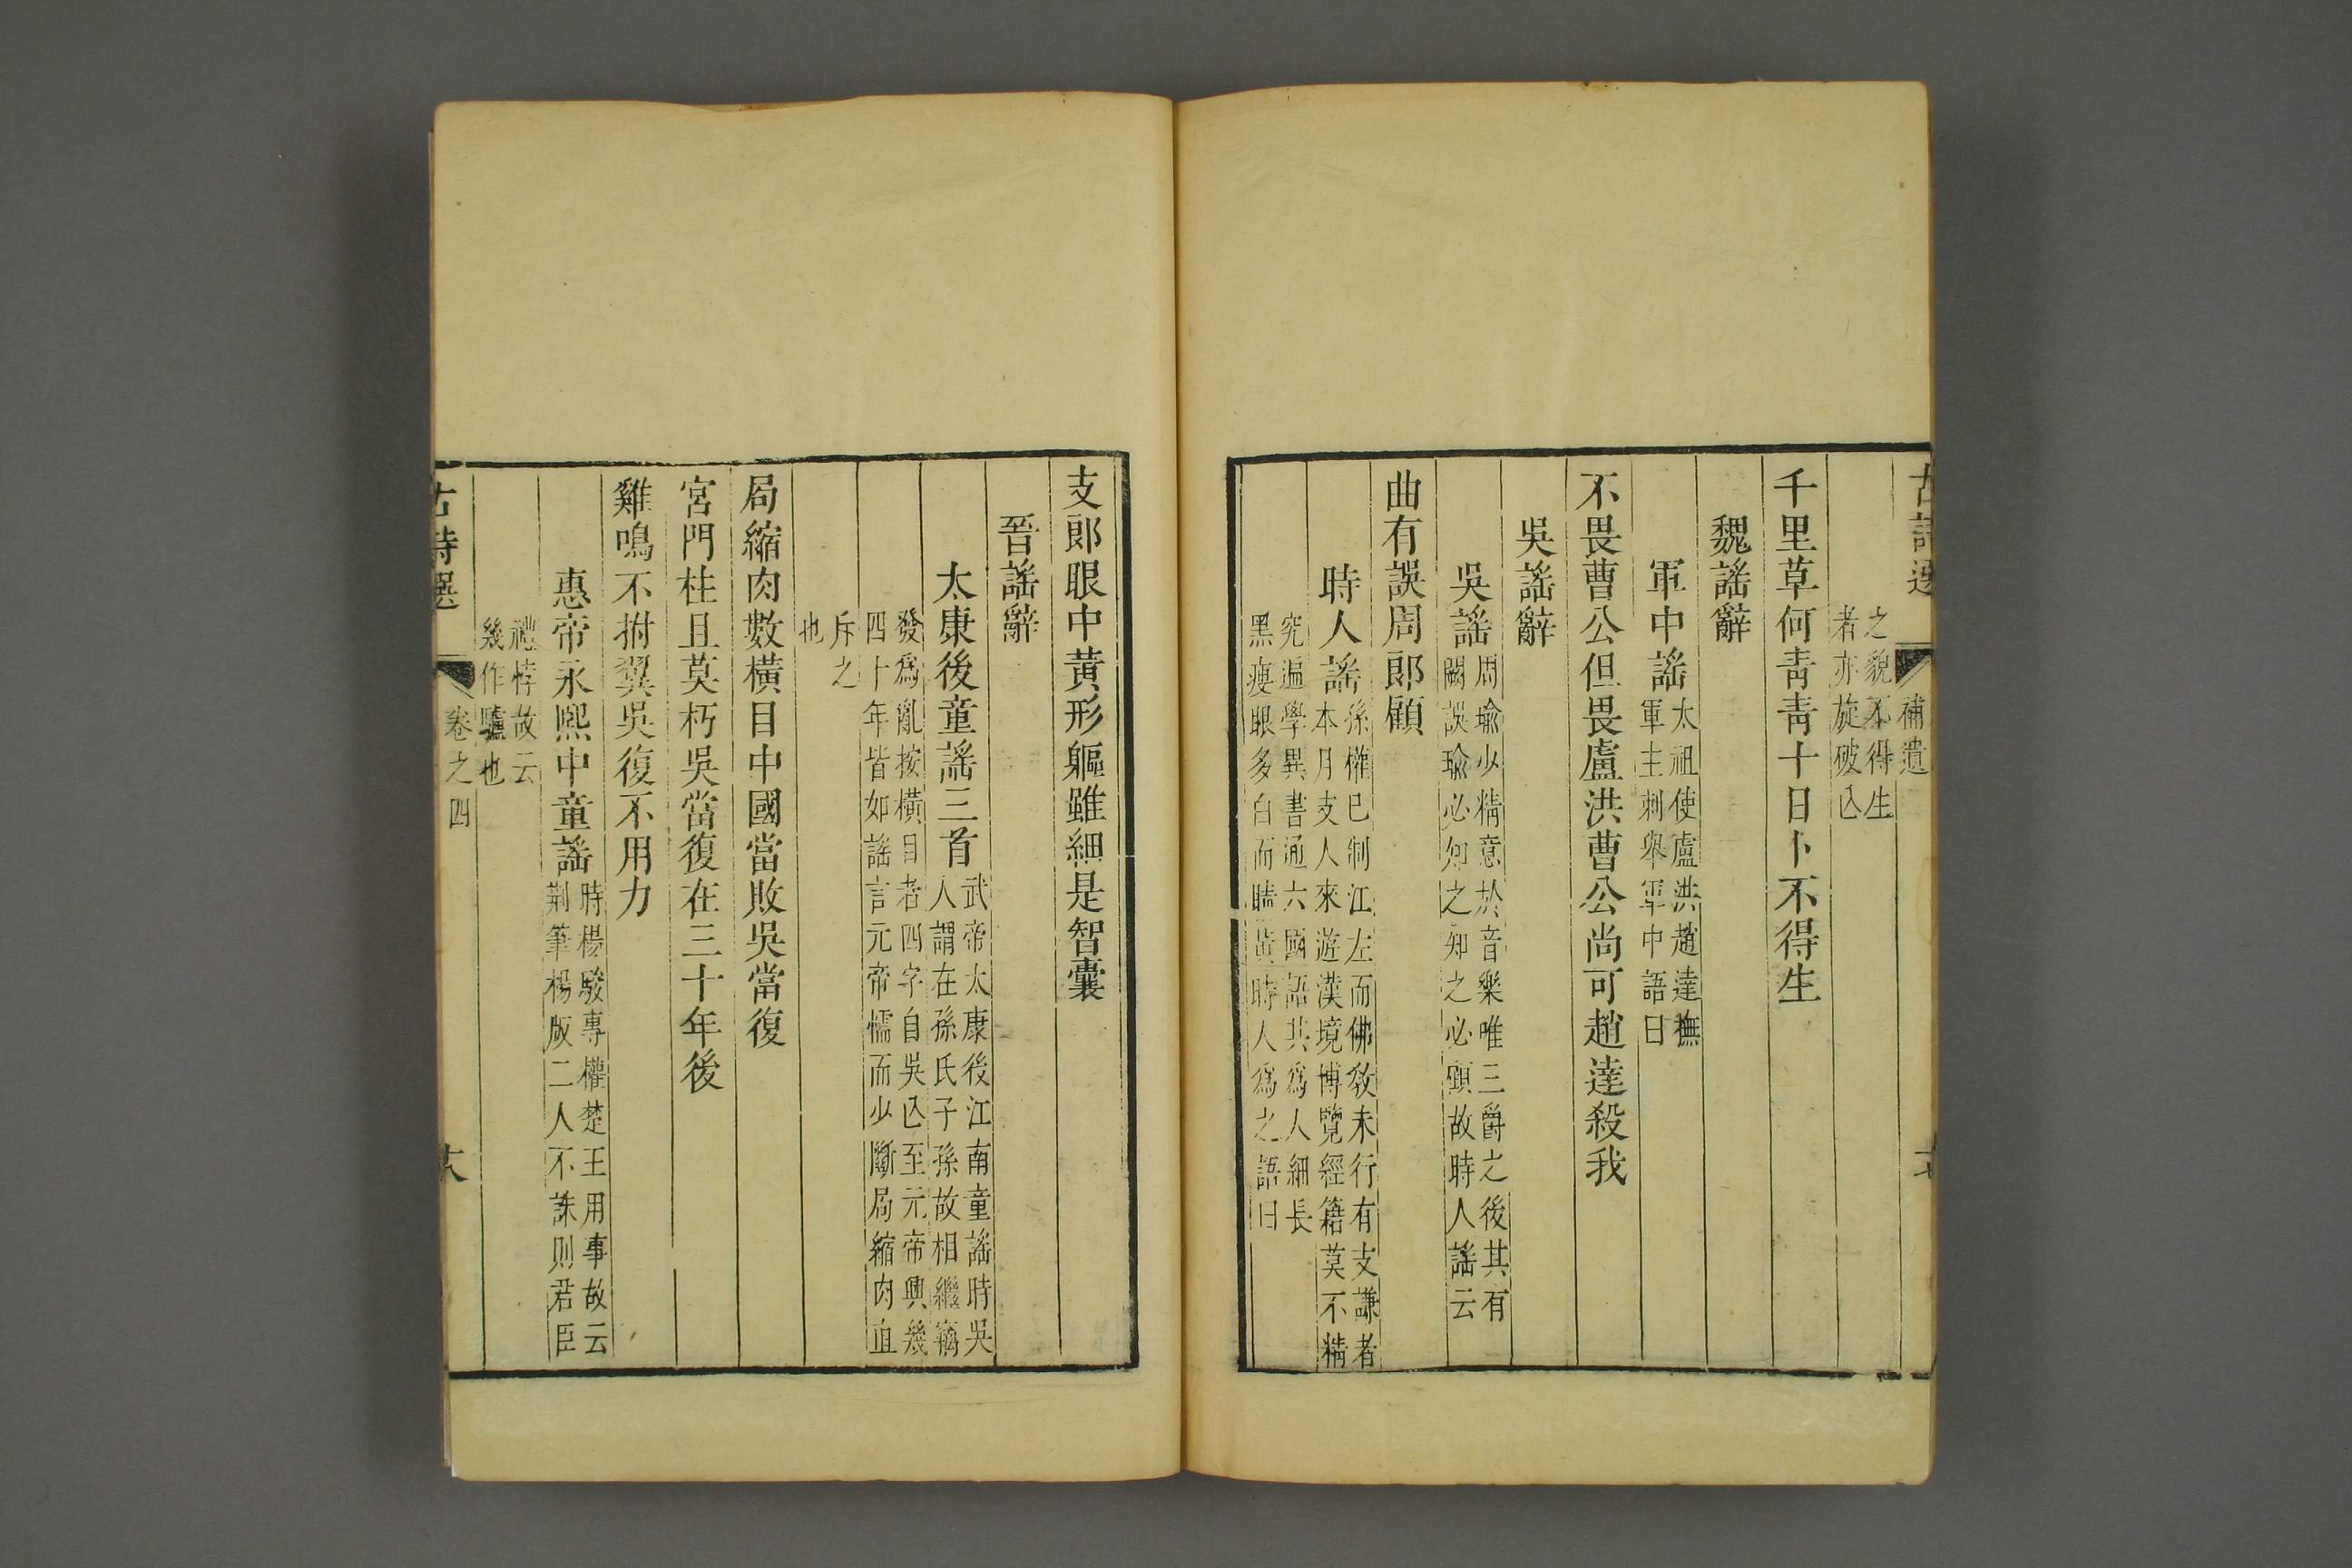 古詩選 補遺
之貌不得生
者亦旋破亾
千里草何青青十日卜不得生
魏謡辭
軍中謡
太祖使盧洪趙達撫
軍主刺舉軍中語曰
不畏曹公但畏盧洪曹公尚可趙達殺我
吳謡辭
吳謡
周瑜少精意於音樂唯三爵之後其有
闕誤瑜必知之知之必顧故時人謡云
曲有誤周郎顧
時人謡
孫權已制江左而佛敎未行有支謙者
本月支人來遊漢境博覽經籍莫不精
究遍學異書通六國語其爲人細長
黑瘦眼多白而睛黃時人爲之語曰
支郎眼中黃形軀雖細是智囊
晉謡辭
太康後童謡三首
武帝太康後江南童謡時吳
人謂在孫氏子孫故相繼竊
發爲亂按橫目者四字自吳亾至元帝興幾
四十年皆如謡言元帝懦而少斷局縮肉直
斥之
也
局縮肉數橫目中國當敗吳當復
宮門柱且莫朽吳當復在三十年後
雞鳴不拊翼吳復不用力
惠帝永熙中童謡
時楊駿專權楚王用事故云
荆筆楊版二人不誅則君臣
禮悖故云
幾作驢也
古詩選 卷之四 十八